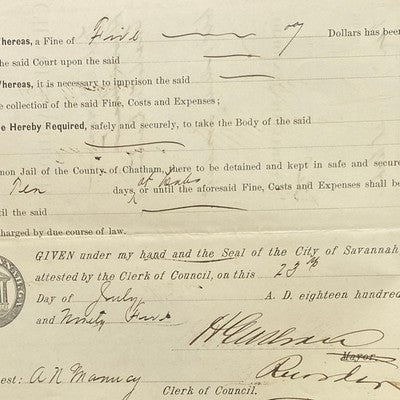 Whereas, a Fine of Five Dollars has been
the said Court upon the said
Whereas, it is necessary to imprison the said
e collection of the said Fine, Costs and Expenses;
e Hereby Required, safely and securely, to take the Body of the said
mon Jail of the County of Chatham, there to be detained and kept in safe and secure
Ten days, or until the aforesaid Fine, Costs and Expenses shall be
til the said
charged by due course of law.
GIVEN under my hand and the Seal of the City of Savannah
attested by the Clerk of Council, on this 23rd
Day of July A. D. eighteen hundred
and Ninety Five
Mayor.
Recorder
est: A N Manucy
Clerk of Council.